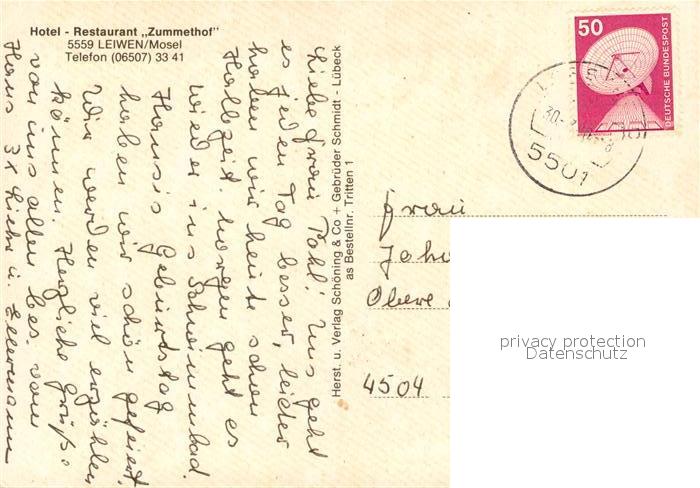 Hotel - Restaurant „Zummethof"
5559 LEIWEN/Mosel
Telefon (06507) 33 41
Liebe Frau Pohl! Uns geht
es jeden Tag besser, leider
haben wir heute schon
Halbzeit. Morgen geht es
wieder ins Schwimmbad.
Hansis Geburtstag
haben wir schön gefeiert.
Wir werden viel erzählen
können. Herzliche Grüße
von uns allen bes. von
Haus u. Ellermann
Herst. u. Verlag Schöning & Co + Gebrüder Schmidt - Lübeck
as Bestellnr. Tritten 1
50
DEUTSCHE BUNDESPOST
5501
Frau
Obere
4504
privacy protection
Datenschutz